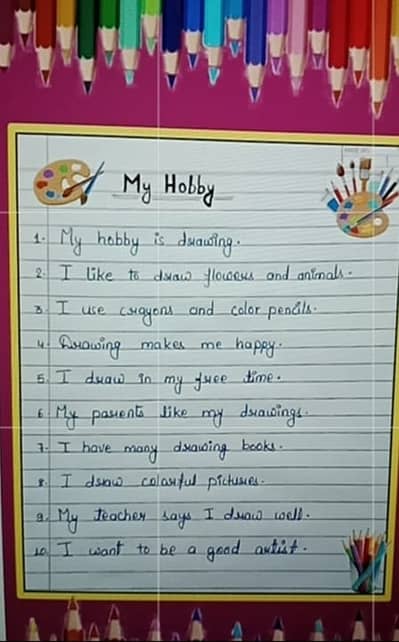 My Hobby
1. My hobby is drawing.
2. I like to draw flowers and animals.
3. I use crayons and color pencils.
4. Drawing makes me happy.
5. I draw in my free time.
6. My parents like my drawings.
7. I have many drawing books.
8. I draw colorful pictures.
9. My teacher says I draw well.
10. I want to be a good artist.